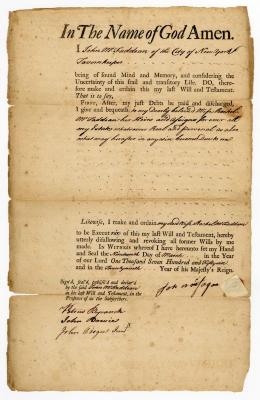 In The Name of God Amen.
I John McFaddean of the City of New York
Tavernkeeper
being of sound Mind and Memory, and considering the
Uncertainty of this frail and transitory Life. DO, there-
fore make and ordain this my last Will and Testament.
That is to say,
FIRST, After, my just Debts be paid and discharged,
I give and bequeath to my Dearly beloved Wife
McFaddean her Heirs and Assigns for ever all
my Estate whatsoever Real and personal as also
what may hereafter in anywise become due to me
Likewise, I make and ordain my said Wife McFaddean
to be Executrix of this my last Will and Testament, hereby
utterly disallowing and revoking all former Wills by me
made. In WITNESS whereof I have hereunto set my Hand
and Seal the Day of March in the Year
of our Lord One Thousand Seven Hundred and
and in the Year of his Majesty's Reign.
Sign'd, seal'd, publish'd and declar'd
by the said John McFaddean
as his last Will and Testament, in the
Presence of us the Subscribers.
John
John